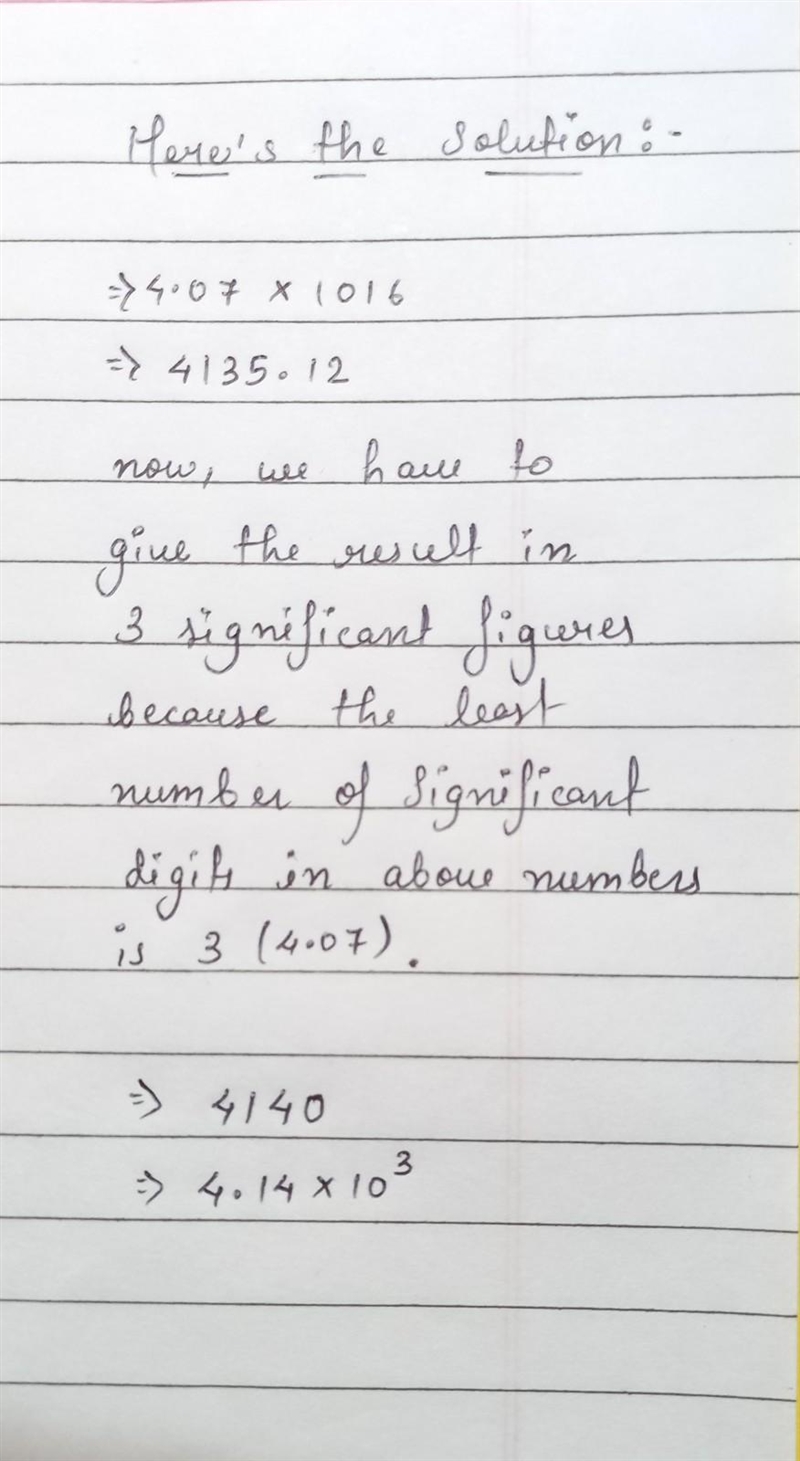 Here's the solution:-
=> 4.07 × 1016
=> 4135.12
now, we have to
give the result in
3 significant figures
because the least
number of significant
digits in above numbers
is 3 (4.07).
=> 4140
=> 4.14 × 10³